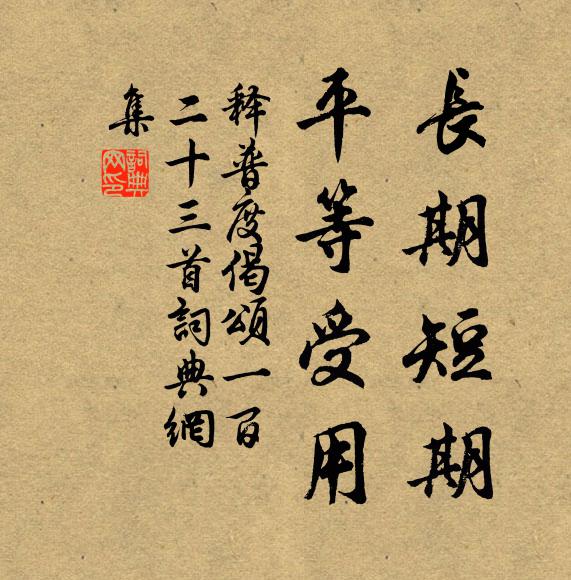 長期短期
平等受用
释普度偈頌一百
二十三首詞典網
集
詞典
网印